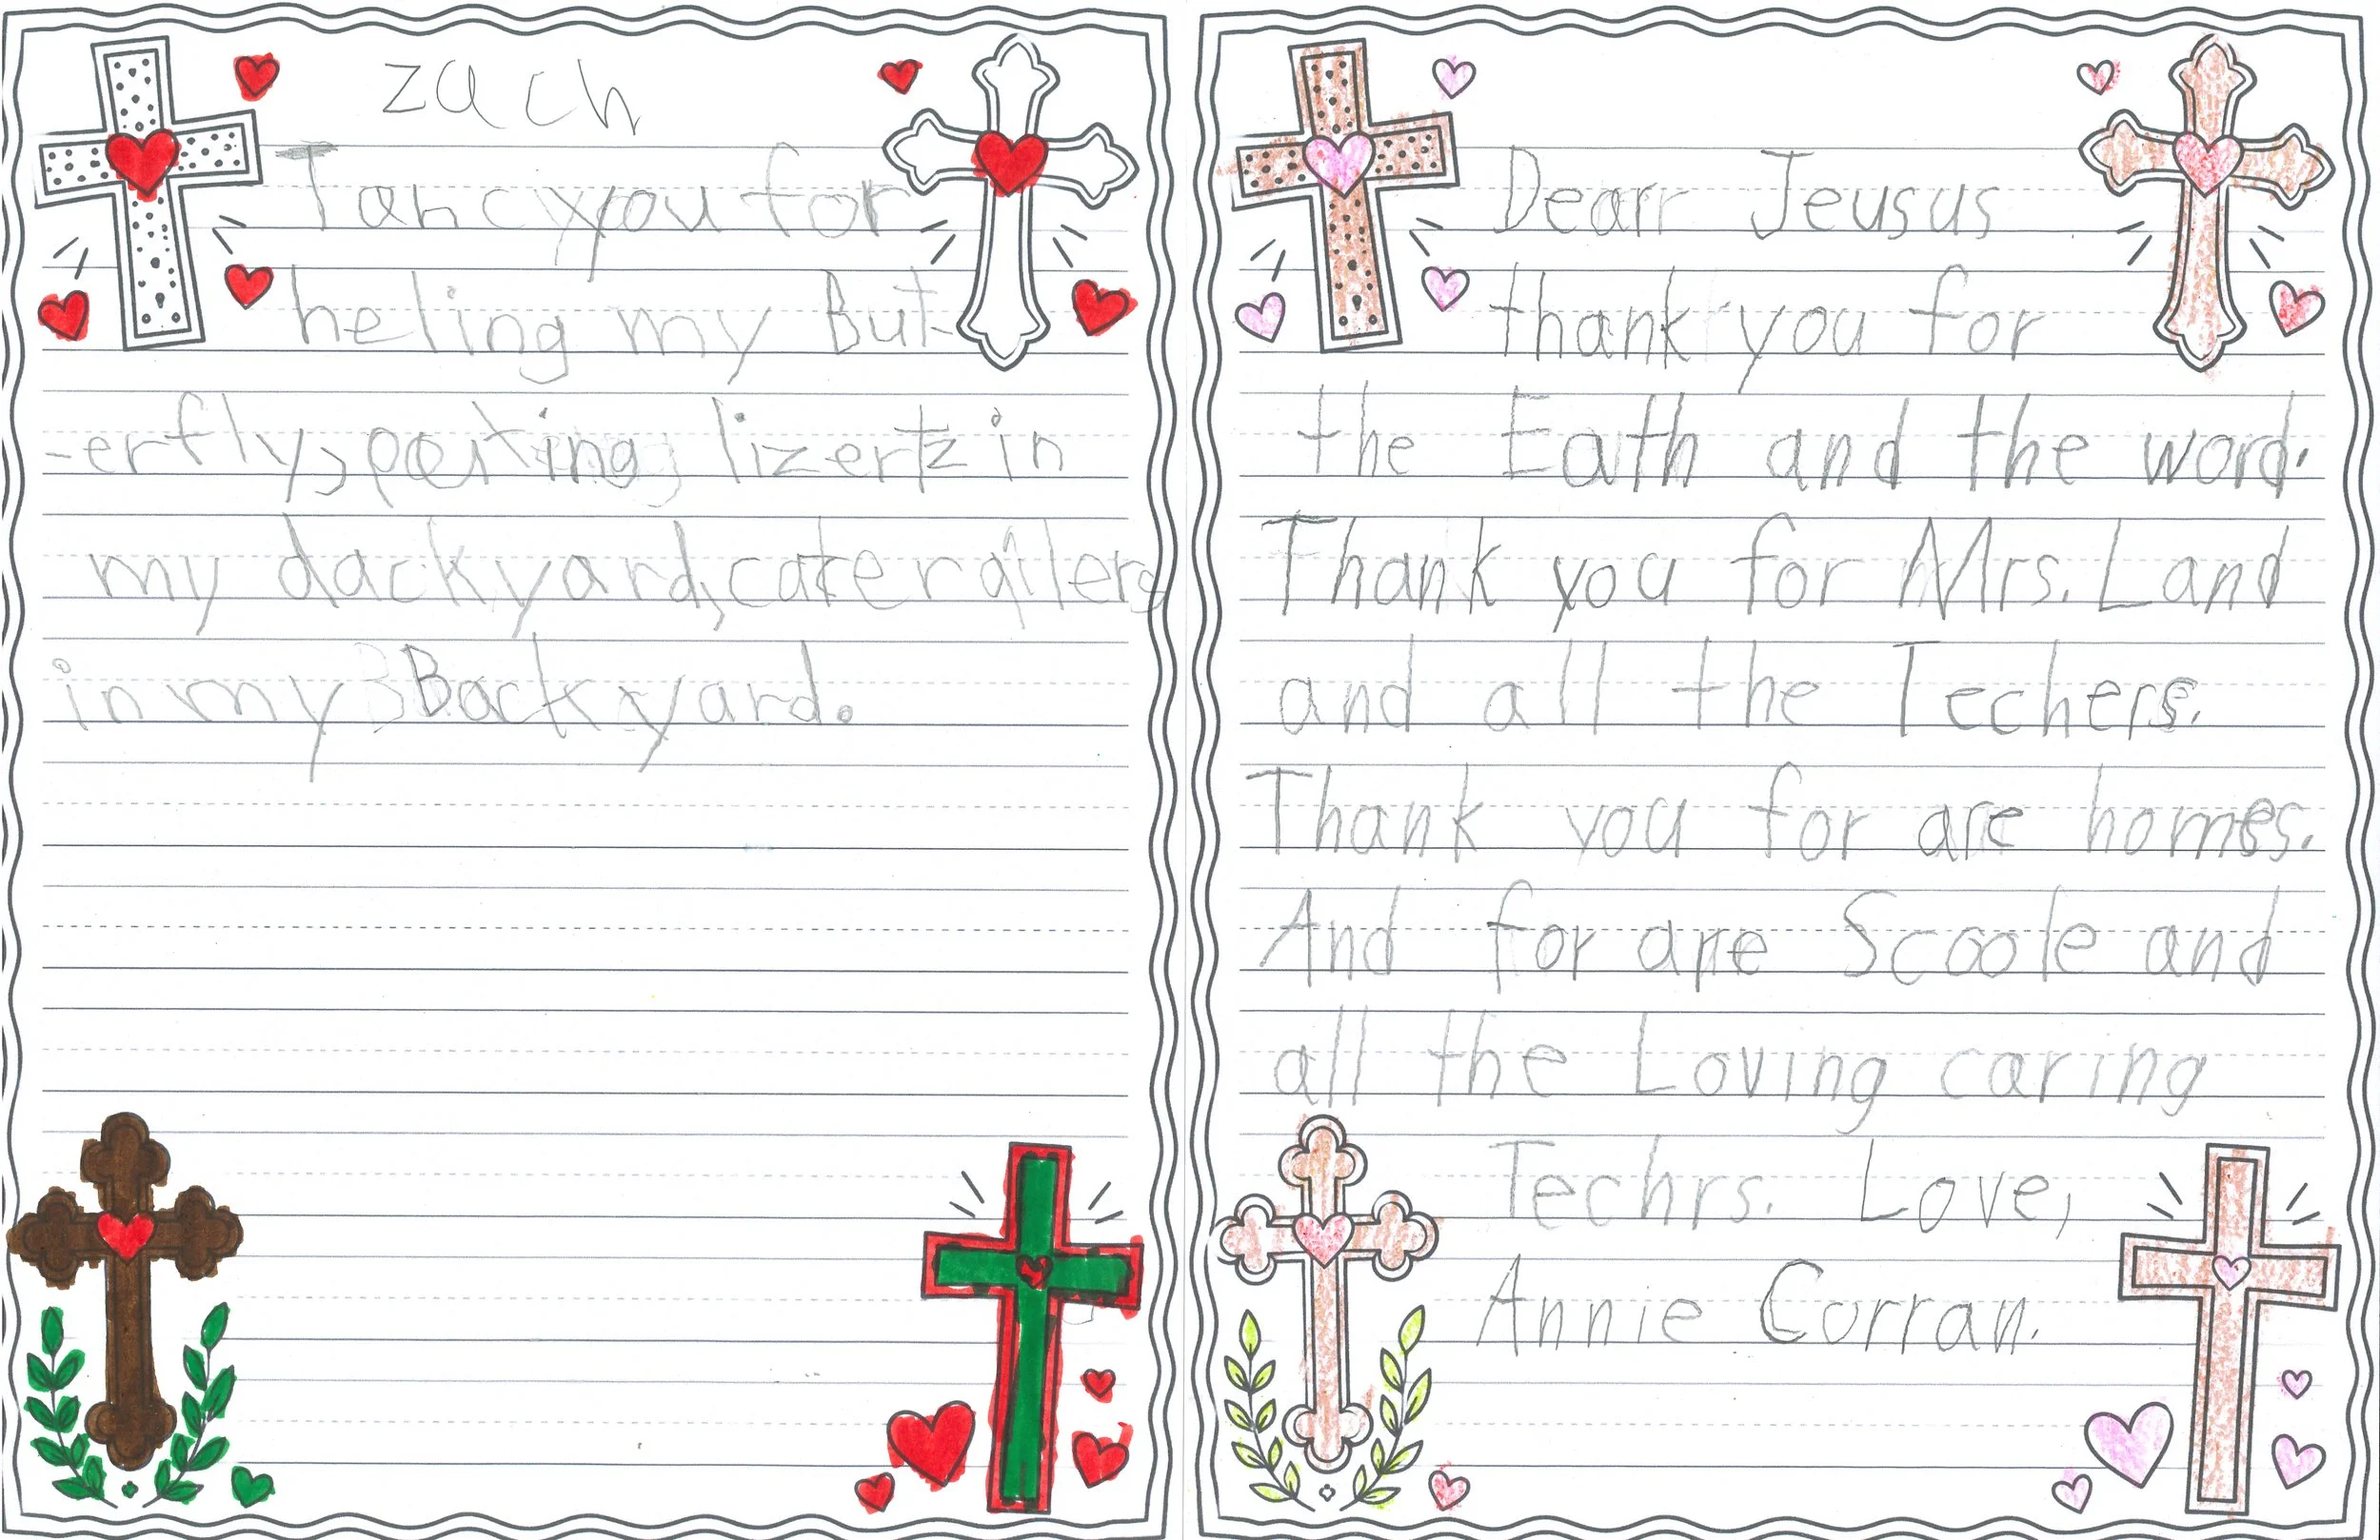 zach
Tancyou for
heling my But-
-erfly, poxting lizertz in
my dackyard, caterailers
in my Backyard.
Dearr Jeusus
thank you for
the Eath and the word.
Thank you for Mrs. Land
and all the Techers.
Thank you for are homes.
And for are Scoole and
all the Loving caring
Techrs. Love,
Annie Corran.